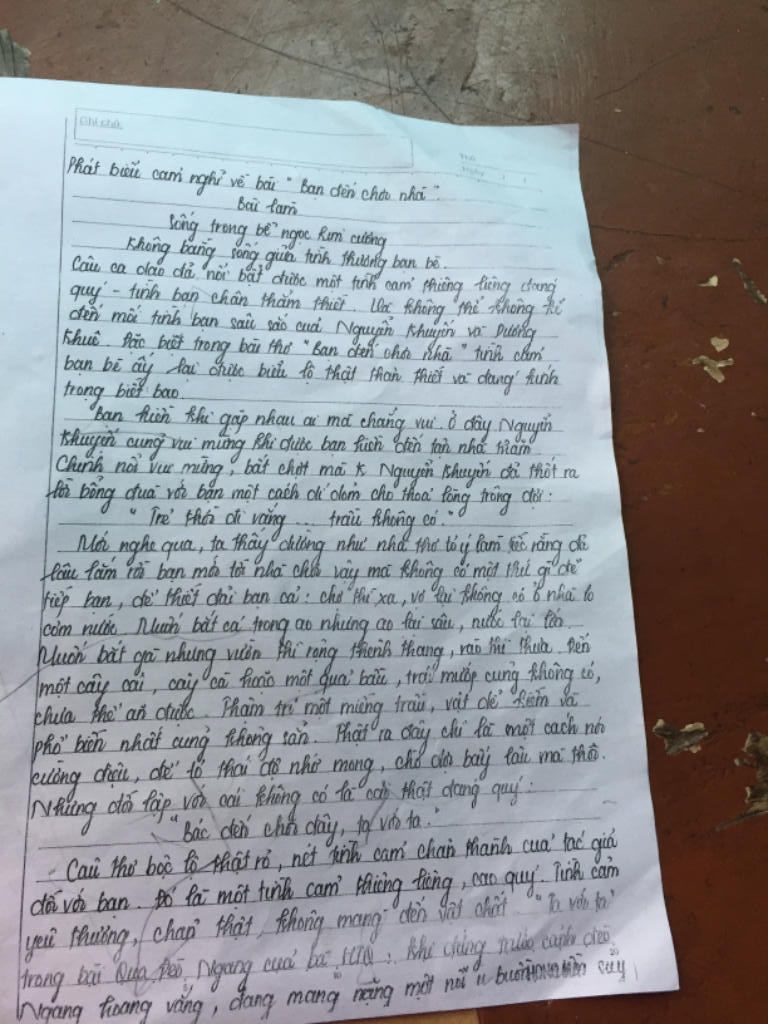 Ghi chú
Thứ
Ngày / /
Phát biểu cảm nghĩ về bài "Bạn đến chơi nhà".
Bài làm
Sống trong bể ngọc kim cương
Không bằng sống giữa tình thương bạn bè.
Câu ca dao đã nói bật được một tình cảm thiêng liêng đáng
quý - tình bạn chân thắm thiết. Và không thể không kể
đến mối tình bạn sâu sắc của Nguyễn Khuyến và Dương
Khuê. Đặc biệt trong bài thơ "Bạn đến chơi nhà" tình cảm
bạn bè ấy lại được biểu lộ thật thân thiết và đáng kính
trọng biết bao.
Bạn hiền khi gặp nhau ai mà chẳng vui. Ở đây Nguyễn
Khuyến cũng vui mừng khi được bạn hiền đến tận nhà thăm.
Chính nỗi vui mừng, bất chợt mà Nguyễn Khuyến đã thốt ra
lời bông đùa với bạn một cách dí dỏm cho thoả lòng trông đợi:
"Trẻ thời đi vắng ... trầu không có."
Mới nghe qua, ta thấy dường như nhà thơ tỏ ý làm tiếc rằng đã
lâu lắm rồi bạn mới tới nhà chơi vậy mà không có một thứ gì để
tiếp bạn, để thiết đãi bạn cả: chợ thì xa, vợ lại không có ở nhà lo
cơm nước. Muốn bắt cá trong ao nhưng ao lại sâu, nước lại lớn.
Muốn bắt gà nhưng vườn thì rộng thênh thang, rào thì thưa. Đến
một cây cải, cây cà hoặc một quả bầu, trái mướp cũng không có,
chưa thể ăn được. Thậm trí một miếng trầu, vật dễ kiếm và
phổ biến nhất cũng không sẵn. Thật ra đây chỉ là một cách nói
cường điệu, để tỏ thái độ nhớ mong, chờ đợi bấy lâu mà thôi.
Nhưng đối lập với cái không có là cái thật đáng quý:
"Bác đến chơi đây, ta với ta."
Câu thơ bộc lộ thật rõ, nét tình cảm chân thành của tác giả
đối với bạn. Đó là một tình cảm thiêng liêng, cao quý. Tình cảm
yêu thương, chân thật, không mang đến vật chất. "Ta với ta"
trong bài Qua Đèo Ngang của bà HTQ: Khi đứng trước cảnh đèo
Ngang hoang vắng, đang mang nặng một nỗi u buồn